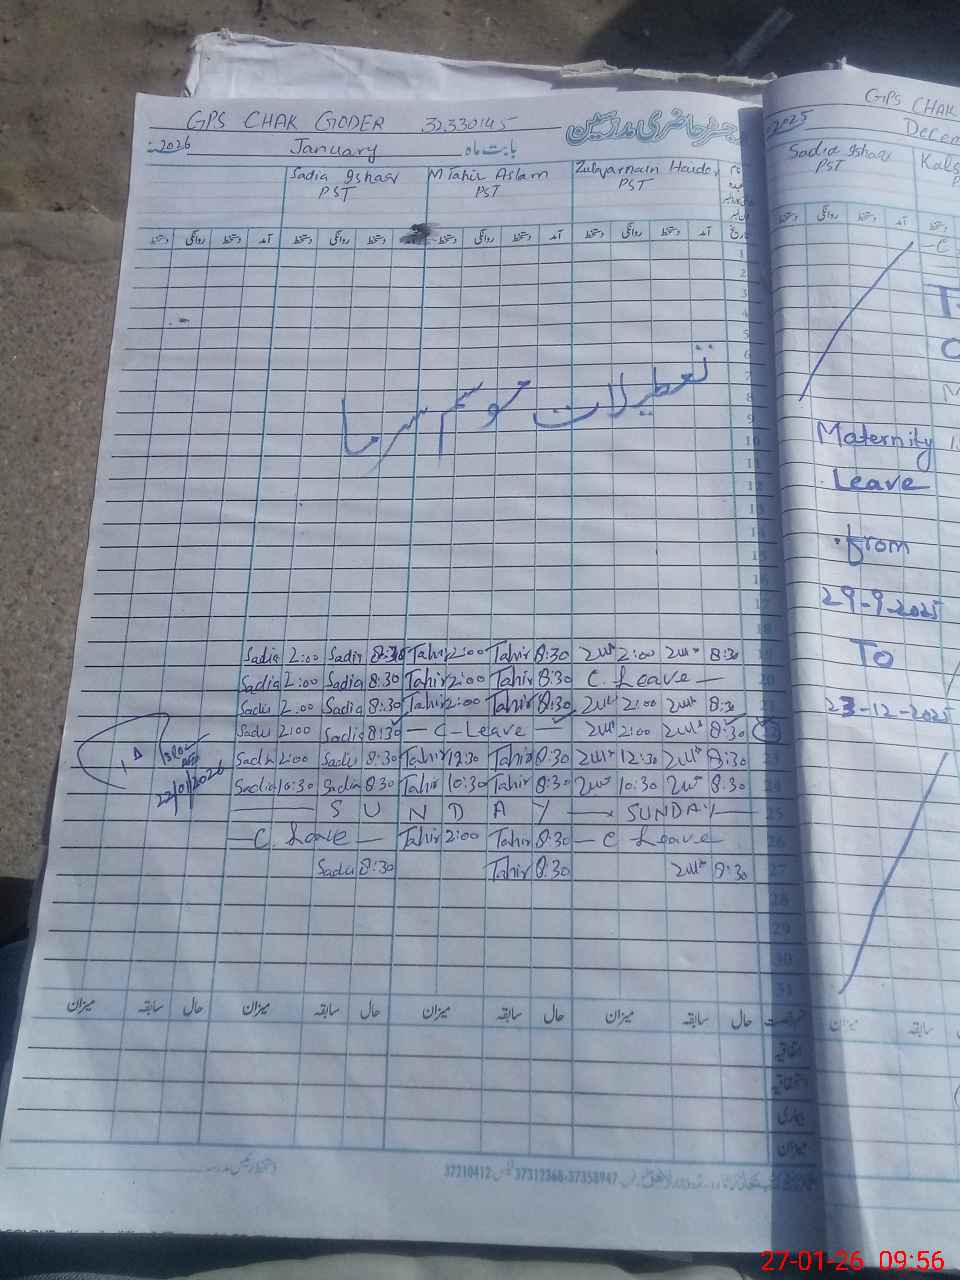 GPS CHAK GODER 32330145 رجسٹر حاضری مدرسین
2026 January بابت ماہ
Sadia Ishaq M Tahir Aslam Zulqarnain Haider
PST PST PST
دستخط روانگی دستخط آمد دستخط روانگی دستخط آمد دستخط روانگی دستخط آمد تاریخ
1
2
3
4
5
6
7
8
9
10
11
12
13
14
15
16
17
18
تعطیلات موسم سرما
Sadia 2:00 Sadia 8:30 Tahir 2:00 Tahir 8:30 2:00 8:30 19
Sadia 2:00 Sadia 8:30 Tahir 2:00 Tahir 8:30 C. Leave — 20
Sadia 2:00 Sadia 8:30 Tahir 2:00 Tahir 8:30 2:00 8:30 21
Sadia 2:00 Sadia 8:30 — C-Leave — 2:00 8:30 22
Sadia 2:00 Sadia 8:30 Tahir 12:30 Tahir 8:30 12:30 8:30 23
Sadia 10:30 Sadia 8:30 Tahir 10:30 Tahir 8:30 10:30 8:30 24
22/01/2026
— S U N D A Y — SUNDAY — 25
— C. Leave — Tahir 2:00 Tahir 8:30 — C Leave 26
Sadia 8:30 Tahir 8:30 8:30 27
28
29
30
31
میزان سابقہ حال میزان سابقہ حال میزان سابقہ حال
اتفاقیہ
استحقاقیہ
بیماری
میزان
دستخط رئیس مدرسہ
37210412 37312368-37358947
2025 GPS CHAK
Decem
Sadia Ishaq Kals
PST
دستخط روانگی دستخط آمد دستخط
Maternity
Leave
from
29-9-2025
To
23-12-2025
میزان سابقہ
27-01-26 09:56